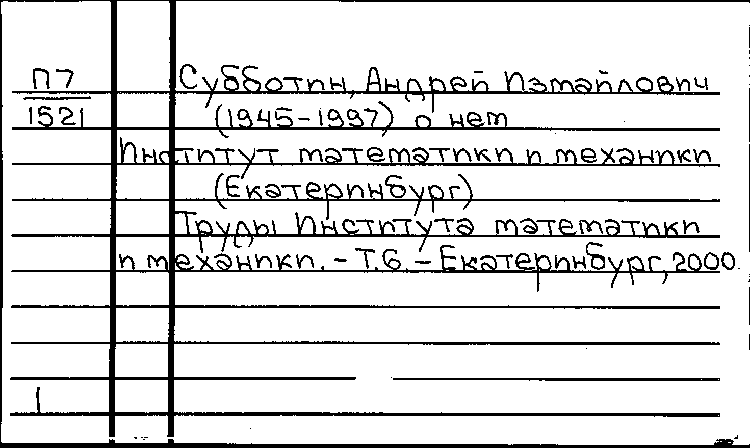 П7
1521
Субботин, Андрей Измайлович
(1945-1997) о нем
Институт математики и механики
(Екатеринбург)
Труды Института математики
и механики. - Т.6. - Екатеринбург, 2000.
1